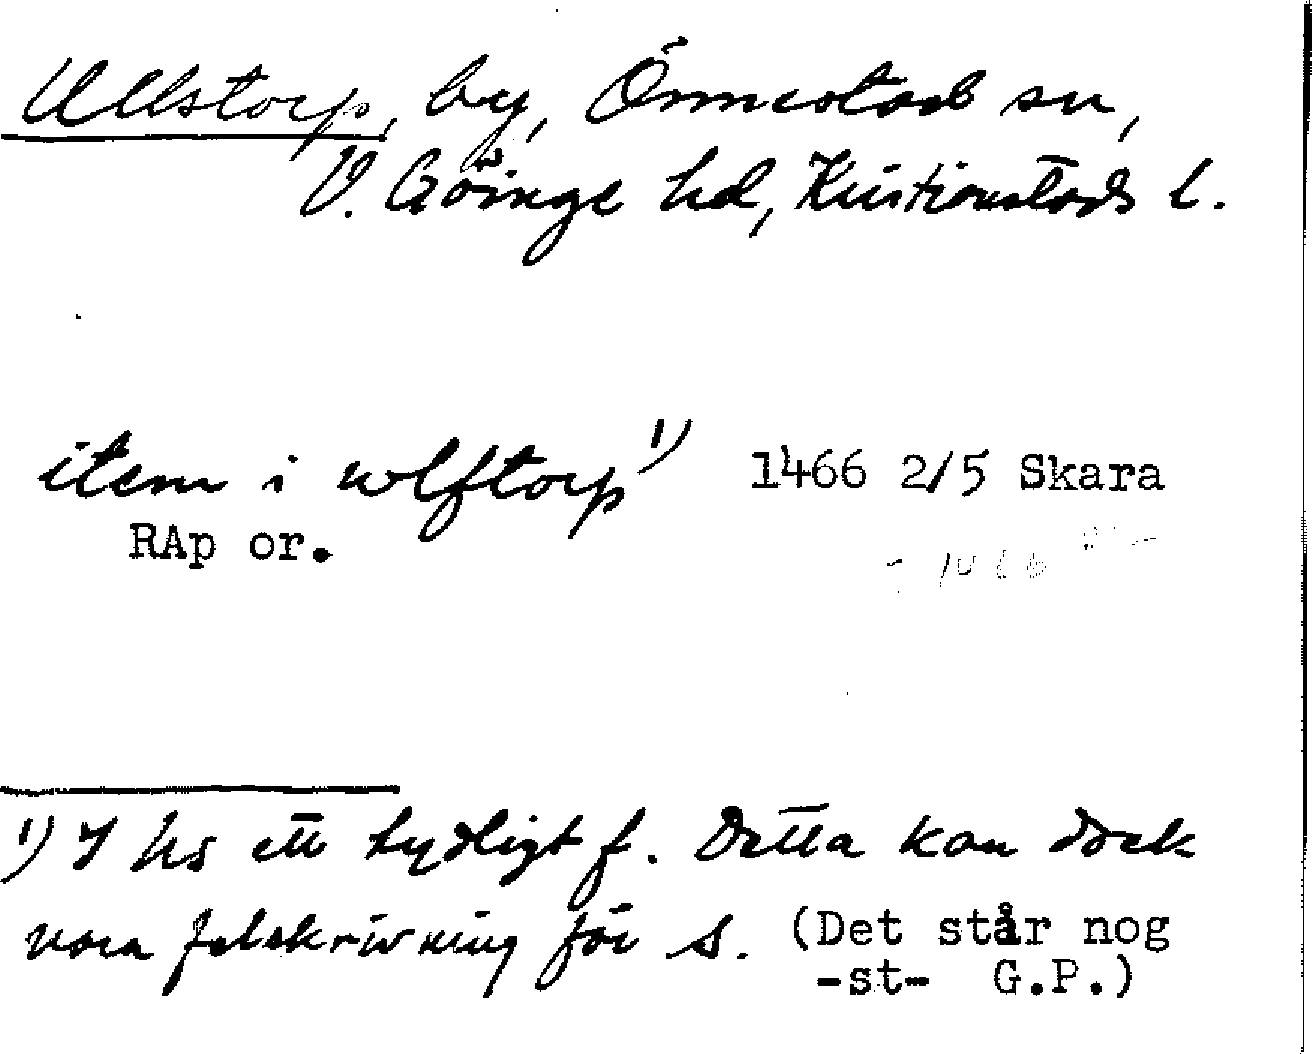 Ullstorp, by, Önnestads sn,
V. Göinge hd, Kristianstads l.
item i wlftorp 1) 1466 2/5 Skara
RAp or.
1) I hs ett tydligt f. Detta kan dock
vara felskrivning för s. (Det står nog
-st- G.P.)